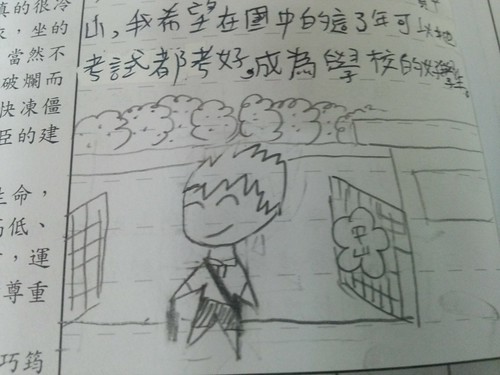 真的很冷
，坐的
當然不
破爛而
快凍僵
臣的建
生命，
高低、
，運
尊重
巧筠
山,我希望在國中的這3年可以把
考試都考好,成為學校的好學生。
中山